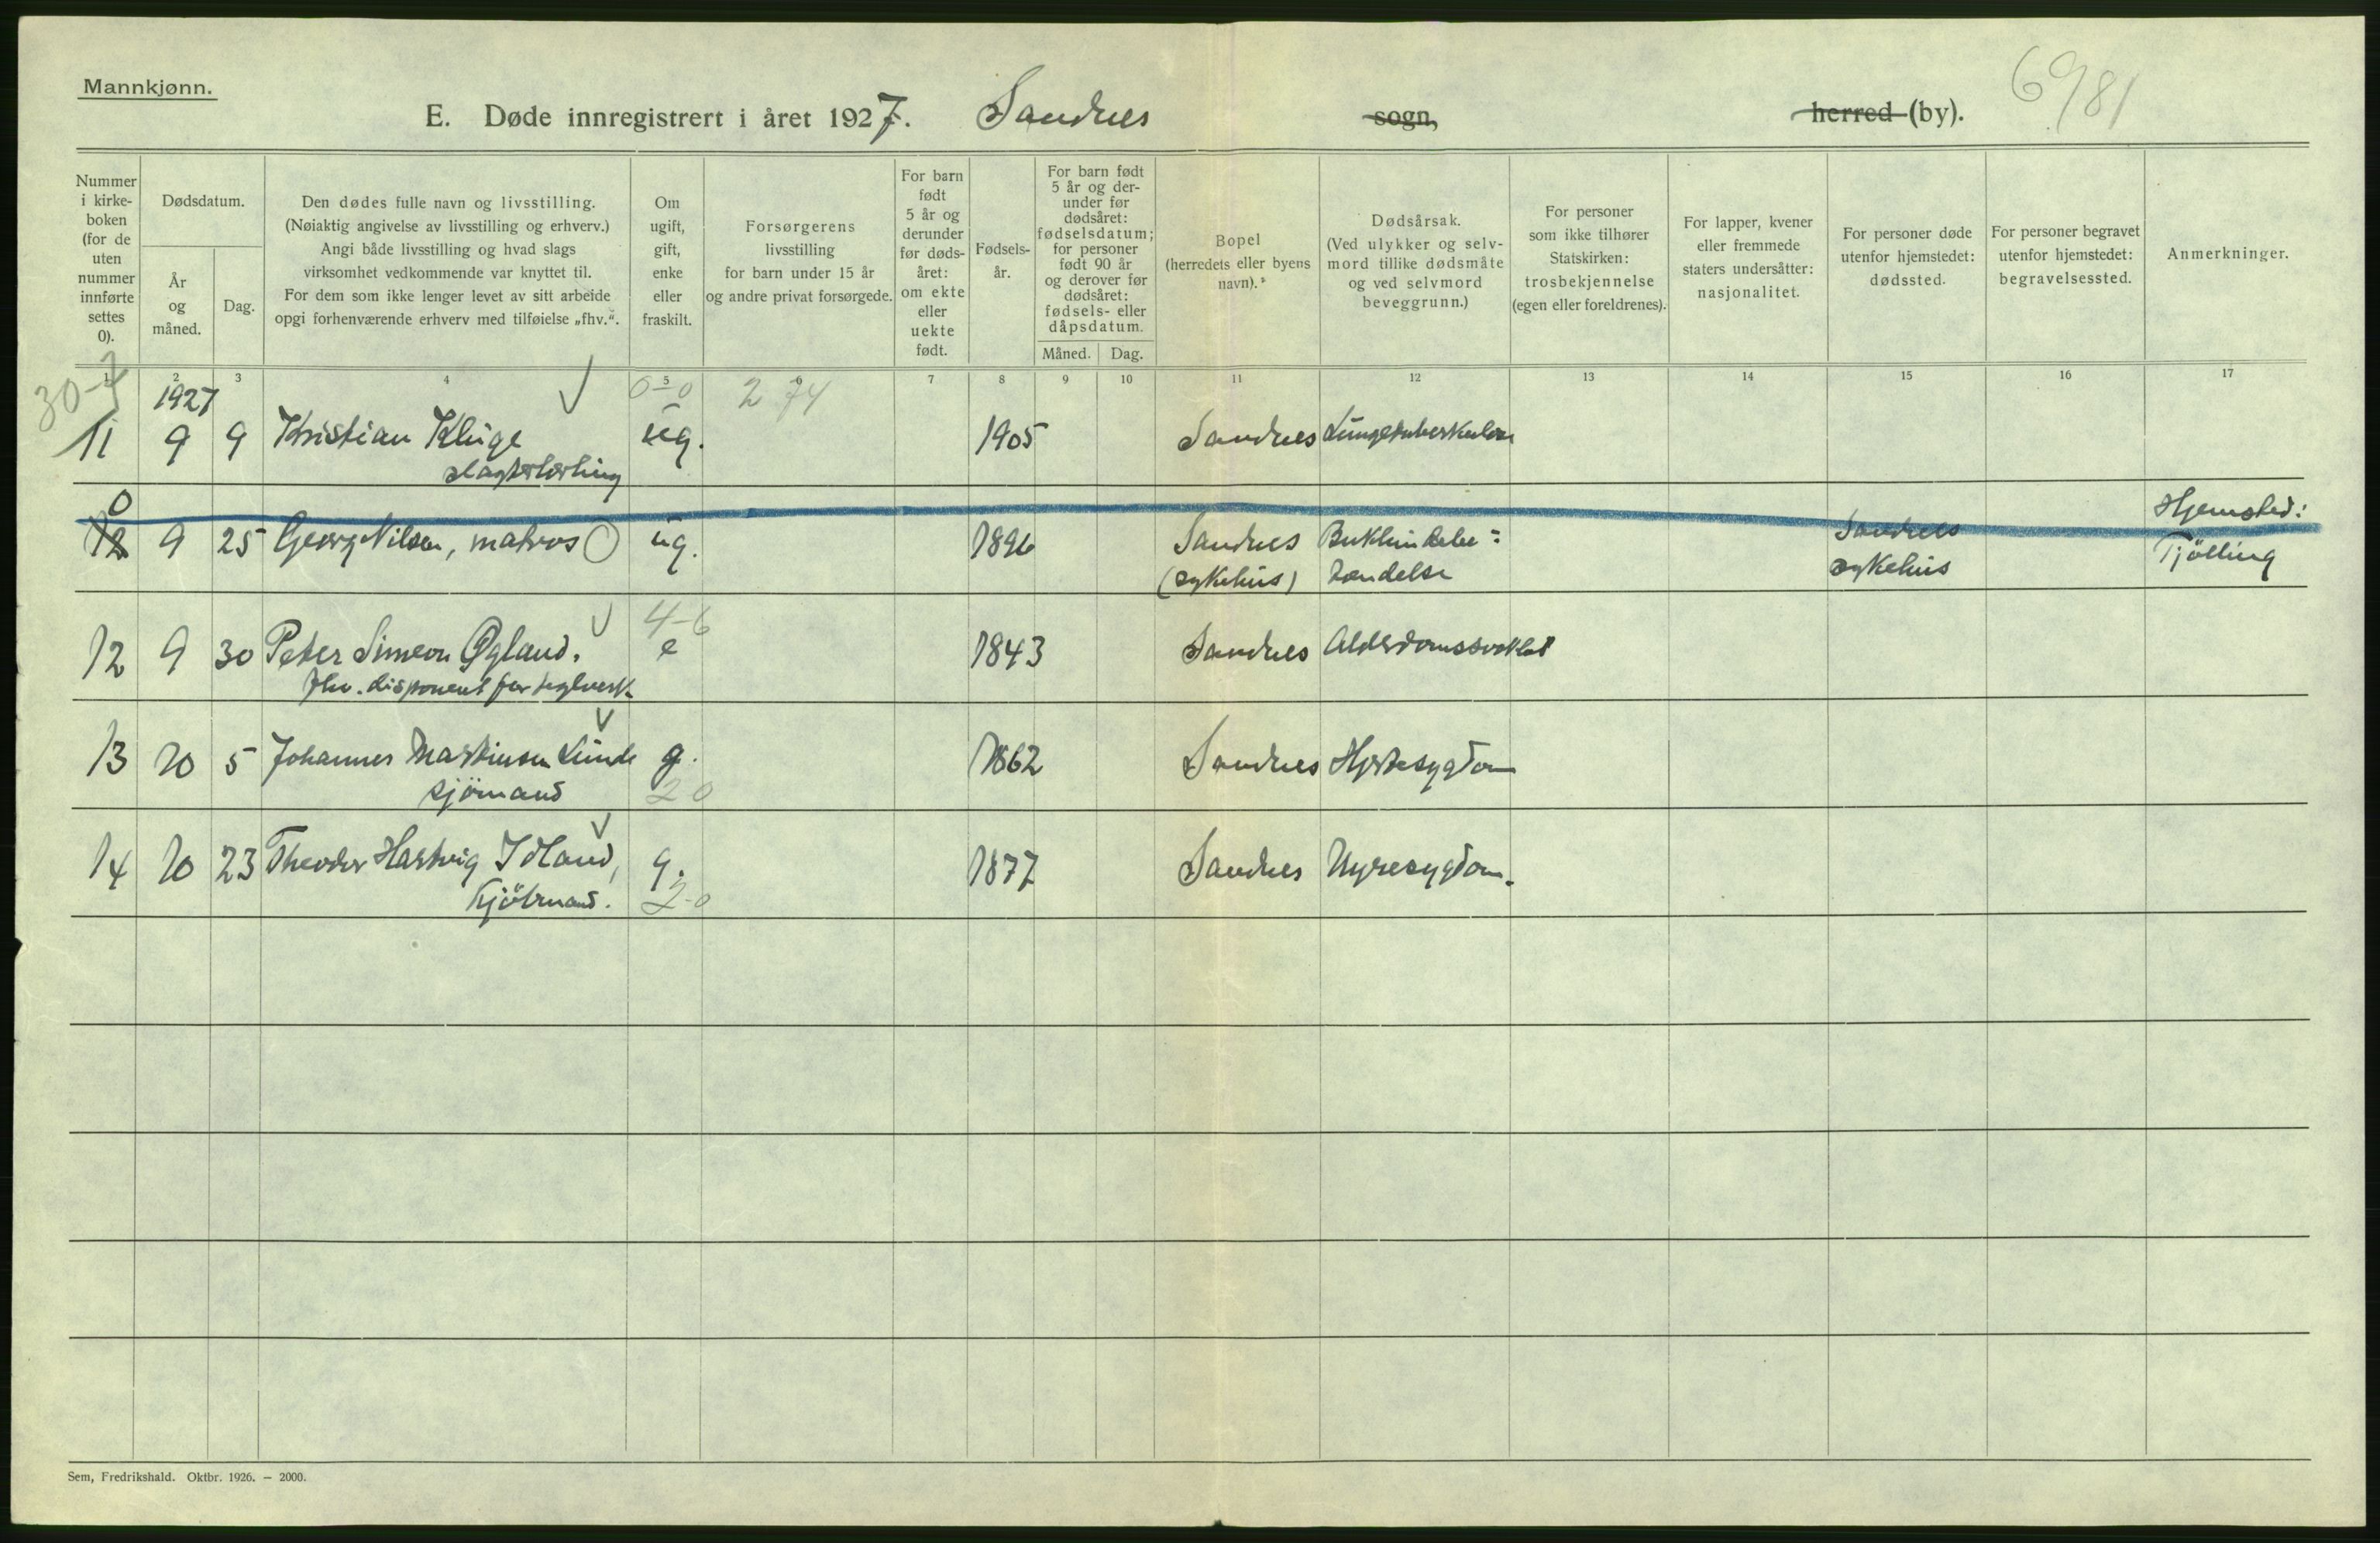 Mannkjønn.
E. Døde innregistrert i året 1927. Sandnes sogn, herred (by).
6981
Nummer
i kirke-
boken
(for de
uten
nummer
innførte
settes
0).
Dødsdatum.
År
og
måned.
Dag.
Den dødes fulle navn og livsstilling.
(Nøiaktig angivelse av livsstilling og erhverv.)
Angi både livsstilling og hvad slags
virksomhet vedkommende var knyttet til.
For dem som ikke lenger levet av sitt arbeide
opgi forhenværende erhverv med tilføielse „fhv.“.
Om
ugift,
gift,
enke
eller
fraskilt.
Forsørgerens
livsstilling
for barn under 15 år
og andre privat forsørgede.
For barn
født
5 år og
derunder
før døds-
året:
om ekte
eller
uekte
født.
Fødsels-
år.
For barn født
5 år og der-
under før
dødsåret:
fødselsdatum;
for personer
født 90 år
og derover før
dødsåret:
fødsels- eller
dåpsdatum.
Måned. Dag.
Bopel
(herredets eller byens
navn).
Dødsårsak.
(Ved ulykker og selv-
mord tillike dødsmåte
og ved selvmord
beveggrunn.)
For personer
som ikke tilhører
Statskirken:
trosbekjennelse
(egen eller foreldrenes).
For lapper, kvener
eller fremmede
staters undersåtter:
nasjonalitet.
For personer døde
utenfor hjemstedet:
dødssted.
For personer begravet
utenfor hjemstedet:
begravelsessted.
Anmerkninger.
1 2 3 4 5 6 7 8 9 10 11 12 13 14 15 16 17
30-7 1927 0-0 2 74
11 9 9 Kristian Kluge ug. 1905 Sandnes Lungetuberkulose
slagterlærling
0 Hjemsted:
12 9 25 Georg Nilsen, matros ug. 1896 Sandnes Bukhindebe- Sandnes Tjølling
(sykehus) tændelse sykehus
4-6
12 9 30 Peter Simeon Øgland. e 1843 Sandnes Alderdomssvakhet
fhv. disponent for teglverk
13 10 5 Johannes Martinsen Lunde g. 1862 Sandnes Hjertesygdom
sjömand 20
14 10 23 Theodor Hartvig Idland, g. 1877 Sandnes Nyresygdom.
Kjöbmand. 2-0
Sem, Fredrikshald. Oktbr. 1926. — 2000.